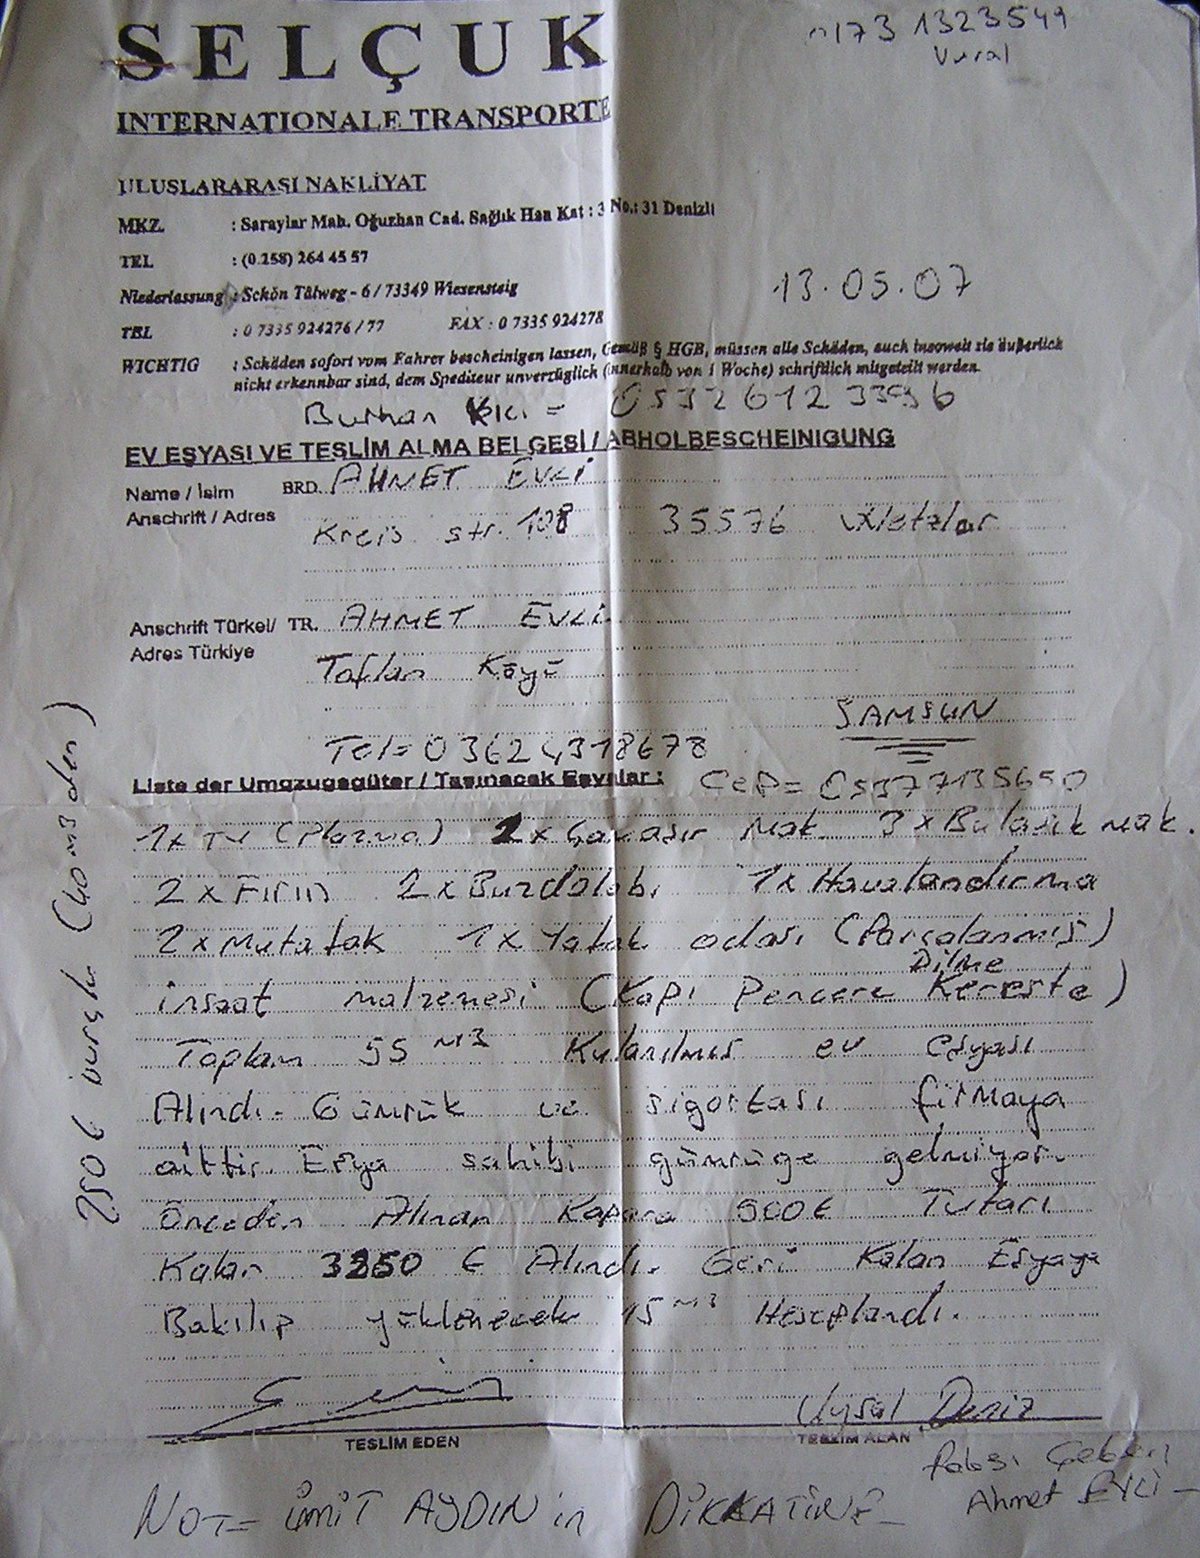 SELÇUK
0173 1323549
Vural
INTERNATIONALE TRANSPORTE
ULUSLARARASI NAKLİYAT
MKZ. : Saraylar Mah. Oğuzhan Cad. Sağlık Han Kat : 3 No.: 31 Denizli
TEL : (0.258) 264 45 57
Niederlassung : Schön Tälweg - 6 / 73349 Wiesensteig
13.05.07
TEL : 0 7335 924276 / 77 FAX : 0 7335 924278
WICHTIG : Schäden sofort vom Fahrer bescheinigen lassen, Gemäß § HGB, müssen alle Schäden, auch insoweit sie äußerlich
nicht erkennbar sind, dem Spediteur unverzüglich (innerhalb von 1 Woche) schriftlich mitgeteilt werden.
Burhan = 0532 612 3396
EV EŞYASI VE TESLİM ALMA BELGESİ / ABHOLBESCHEINIGUNG
Name / İsim BRD. AHMET EVLİ
Anschrift / Adres
Kreis str. 108 35576 Wetzlar
Anschrift Türkei/ TR. AHMET EVLİ
Adres Türkiye
Taflan Köyü
SAMSUN
Tel= 0362 4318678
Liste der Umzugsgüter / Taşınacak Eşyalar : CeP= 05377135650
1x TV (Plazma) 2x Çamaşır Mak. 3x Bulaşık mak.
2x Fırın 2x Buzdolabı 1x Havalandırma
2x Mutafak 1x Yatak odası (Parçalanmış)
Dilme
insaat malzemesi (Kapı Pencere Kereste)
Toplam 55 M3 Kulanılmış ev eşyası
Alındı. Gümrük ve sigortası firmaya
aittir. Eşya sahibi gümrüğe gelmiyor.
Önceden Alınan Kapara 500€ Tutarı
Kalan 3250 € Alındı. Geri Kalan Eşyaya
Bakılıp yüklenecek 15 M3 Hesaplandı.
2506 (40 m3 den)
Uysal Deniz
TESLİM EDEN TESLİM ALAN
Ahmet EVLİ
NOT= ÜMİT AYDIN in DİKKATİNE